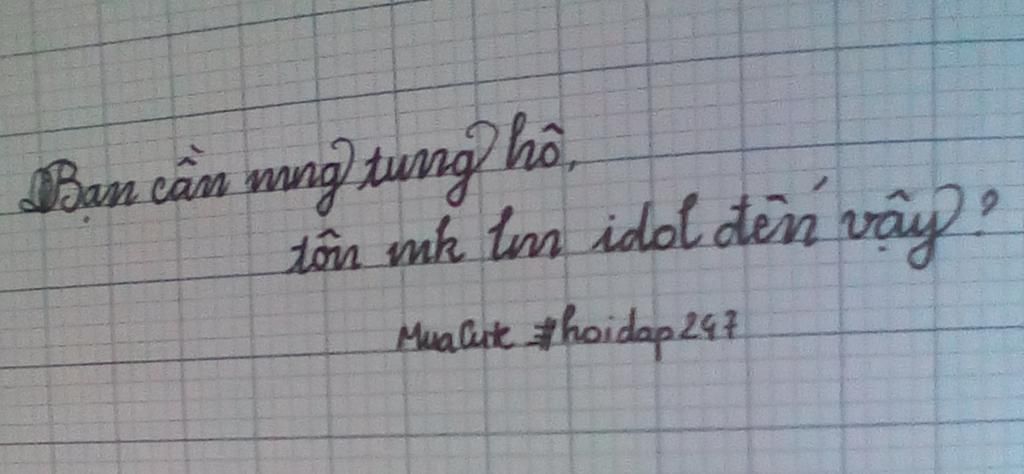 Bạn cần mng tung hô,
tôn mk lm idol đến vậy?
MuaCute #hoidap247